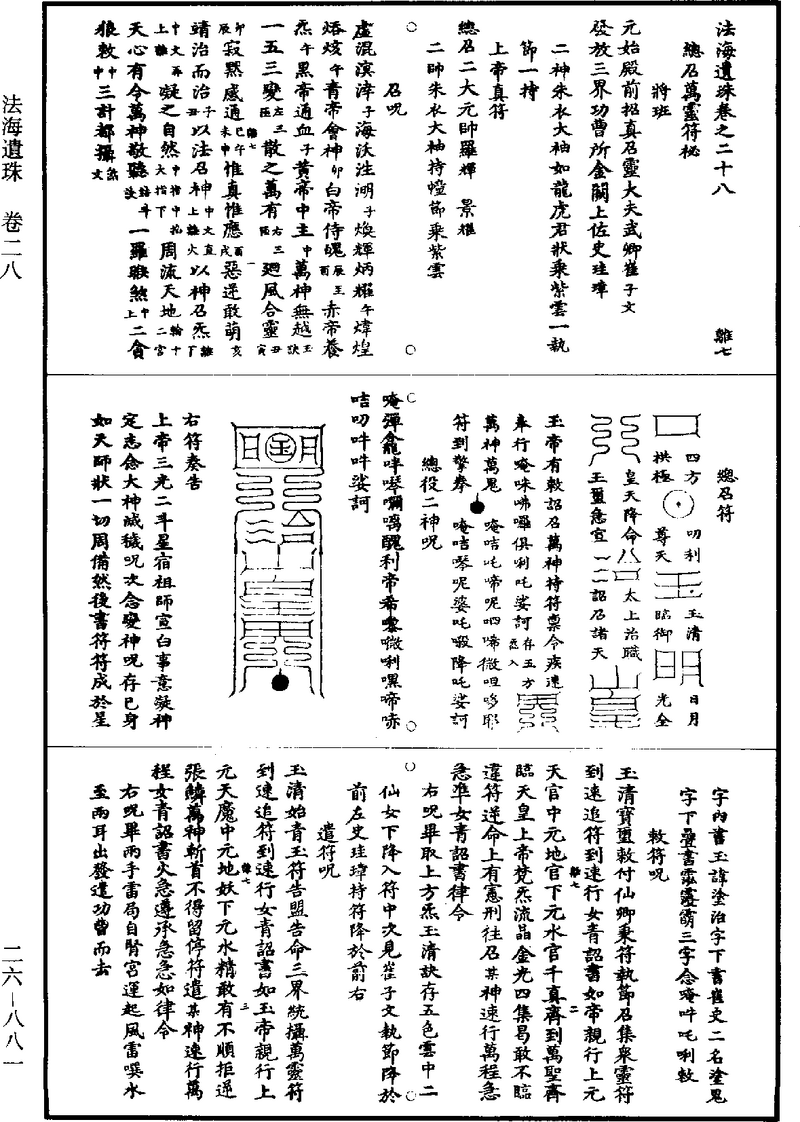 法海遺珠 卷二八
二六—八八一
法海遺珠卷之二十八
難七
總召萬靈符秘
將班
元始殿前招真召靈大夫武卿崔子文
發放三界功曹所金闕上佐史珪璋
二神朱衣大袖如龍虎君狀乘紫雲一執
節一持
上帝真符
總召二大元帥羅輝 景耀
二帥朱衣大袖持幢節乘紫雲
召呪
虛混溟涬子海沃泩溯子煥輝炳耀午煒煌
焟炫午青帝會神卯白帝侍魄酉赤帝養
炁午黑帝通血子黃帝中主中萬神無越玉訣
一五三變左三散之萬有右三廻風合靈丑寅
卯辰寂默感通巳午未申惟真惟應酉戌惡逆敢萌亥
靖治而治子丑以法召神中文直上離火以神召炁離丁
中文再上離凝之自然中指中孔大指下周流天地輪十二宮
天心有令萬神敬聽一羅睺煞中上二貪
狼敕中三計都攝文
總召符
四方
拱極
叨利
尊天
玉清
臨御
日月
光全
皇天降命
太上治職
玉璽急宣
詔召諸天
玉帝有敕詔召萬神持符禀令疾速
奉行唵咪咈囉俱利吒娑訶存五方炁入
萬神萬鬼 唵咭吒啼呢呬啼微呾哆耶
符到擎拳 唵咭琴呢婆吒嘏降吒娑訶
總役二神呪
唵彈龕吽琴嚩嚆醜利帝希㘑微唎嘿啼哧
咭叨吽吽娑訶
右符奏告
上帝三光二斗星宿祖師宣白事意凝神
定志念大神滅穢呪次念變神呪存已身
如天師狀一切周備然後書符符成於星
字內書玉諱塗治字下書崔文二名塗鬼
字下疊書霐靉霛三字念唵吽吒唎敕
敕符呪
玉清寶璽敕付仙卿秉符執節召集衆靈符
到速追符到速行女青詔書如帝親行上元
天官中元地官下元水官千真齊到萬聖齊
臨天皇上帝梵炁流晶金光四集曷敢不臨
違符逆命上有憲刑往召某神速行萬程急
急準女青詔書律令
右呪畢取上方炁玉清訣存五色雲中二
仙女下降入符中次見崔子文執節降於
前左史珪璋持符降於前右
遣符呪
玉清始青玉符告盟告命三界統攝萬靈符
到速追符到速行女青詔書如玉帝親行上
元天魔中元地妖下元水精敢有不順拒逆
張鱗萬神斬首不得留停符遣某神速行萬
程女青詔書火急遵承急急如律令
右呪畢兩手雷局自腎宮運起風雷噀水
至兩耳出發遣功曹而去